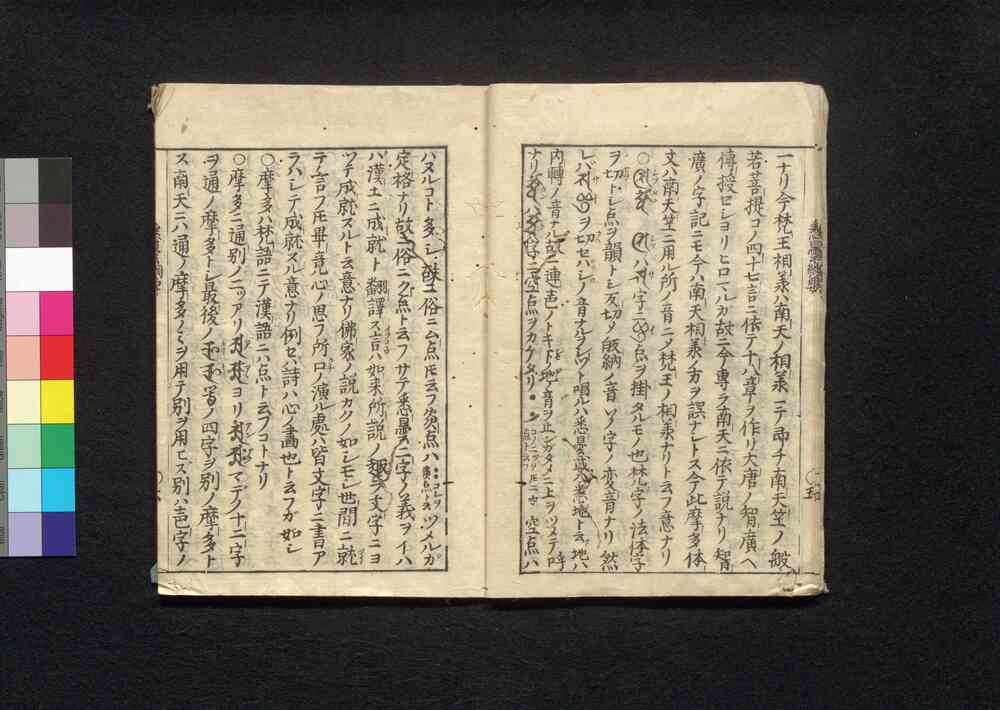 一ナリ今梵王相承ハ南天ノ相承ニテ即チ南天竺ノ般
若菩提コノ四十七言ニ依テ十八章ヲ作リ大唐ノ智廣ヘ
傳授セシヨリヒロマルカ故ニ今專ラ南天ニ依テ説ナリ智
廣ノ字記ニモ今ハ南天相承ノ方ヲ誤ナレトス今此摩多体
文ハ南天竺ニ用ル所ノ音ニメ梵王ノ相承ナリト云フ意ナリ
○ ハ 字ニ 点ヲ掛タルモノ也梵字ノ法体字
ヲ切トシ点ヲ韻トシ反切メ般納ノ音ソノ字ノ変音ナリ然
レバ ヲ切セバシノ音ナルヲシツト唱ルハ悉曇或ハ悉地ト云地ハ
内轉ノ音ナル故ニ連声ノトキト地ノ音ヲ止シガタメニ上ヲツメテ呼
ナリ ハ 字ニ空点ヲカケタリ 空点ハ
ハヌルコト多シ故ニ俗ニム点トモ云フ炎点ハ ツメルガ
定格ナリ故ニ俗ニク点ト云フサテ悉曇ノ二字ノ義ヲイハ
ハ漢土ニ成就ト翻譯ス言ハ如来所説ノ趣ヲ文字ニヨ
ツテ成就スルト云意ナリ佛家ノ説カクノ如シモシ世間ニ就
テ言フトモ畢竟心ノ思フ所口ノ演ル處ハ皆文字ニ書ア
ラハシテ成就スル意ナリ例セバ詩ハ心ノ畵也ト云フガ如シ
○摩多ハ梵語ニテ漢語ニハ点ト云フコトナリ
○摩多ニ通別ノ二ツアリ ヨリ マデノ十二字
ヲ通ノ摩多トシ最後ノ 等ノ四字ヲ別ノ摩多ト
ス南天ニハ通ノ摩多ノミヲ用テ別ヲ用ヒズ別ハ声字ノ